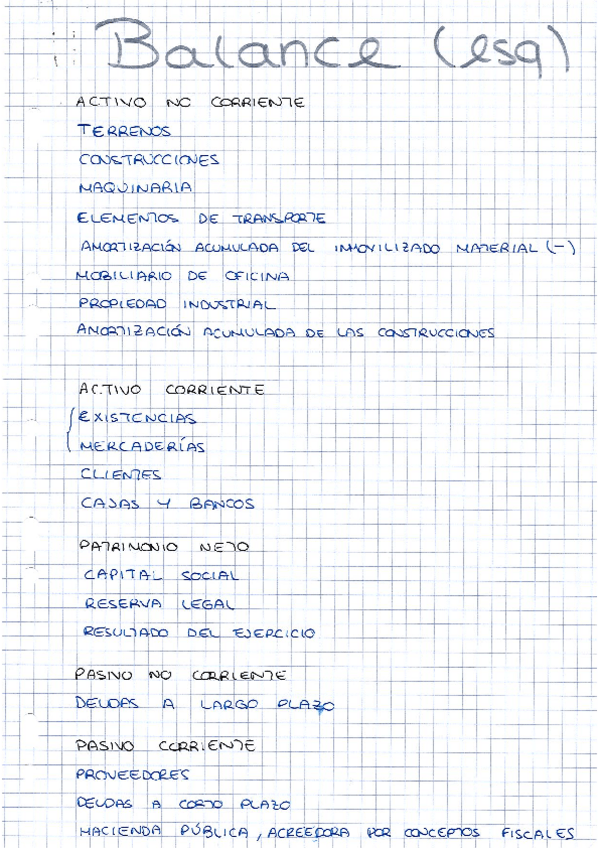 Balance (esq)
ACTIVO NO CORRIENTE
TERRENOS
CONSTRUCCIONES
MAQUINARIA
ELEMENTOS DE TRANSPORTE
AMORTIZACIÓN ACUMULADA DEL INMOVILIZADO MATERIAL (-)
MOBILIARIO DE OFICINA
PROPIEDAD INDUSTRIAL
AMORTIZACIÓN ACUMULADA DE LAS CONSTRUCCIONES
ACTIVO CORRIENTE
EXISTENCIAS
MERCADERÍAS
CLIENTES
CAJAS Y BANCOS
PATRIMONIO NETO
CAPITAL SOCIAL
RESERVA LEGAL
RESULTADO DEL EJERCICIO
PASIVO NO CORRIENTE
DEUDAS A LARGO PLAZO
PASIVO CORRIENTE
PROVEEDORES
DEUDAS A CORTO PLAZO
HACIENDA PÚBLICA, ACREEDORA POR CONCEPTOS FISCALES